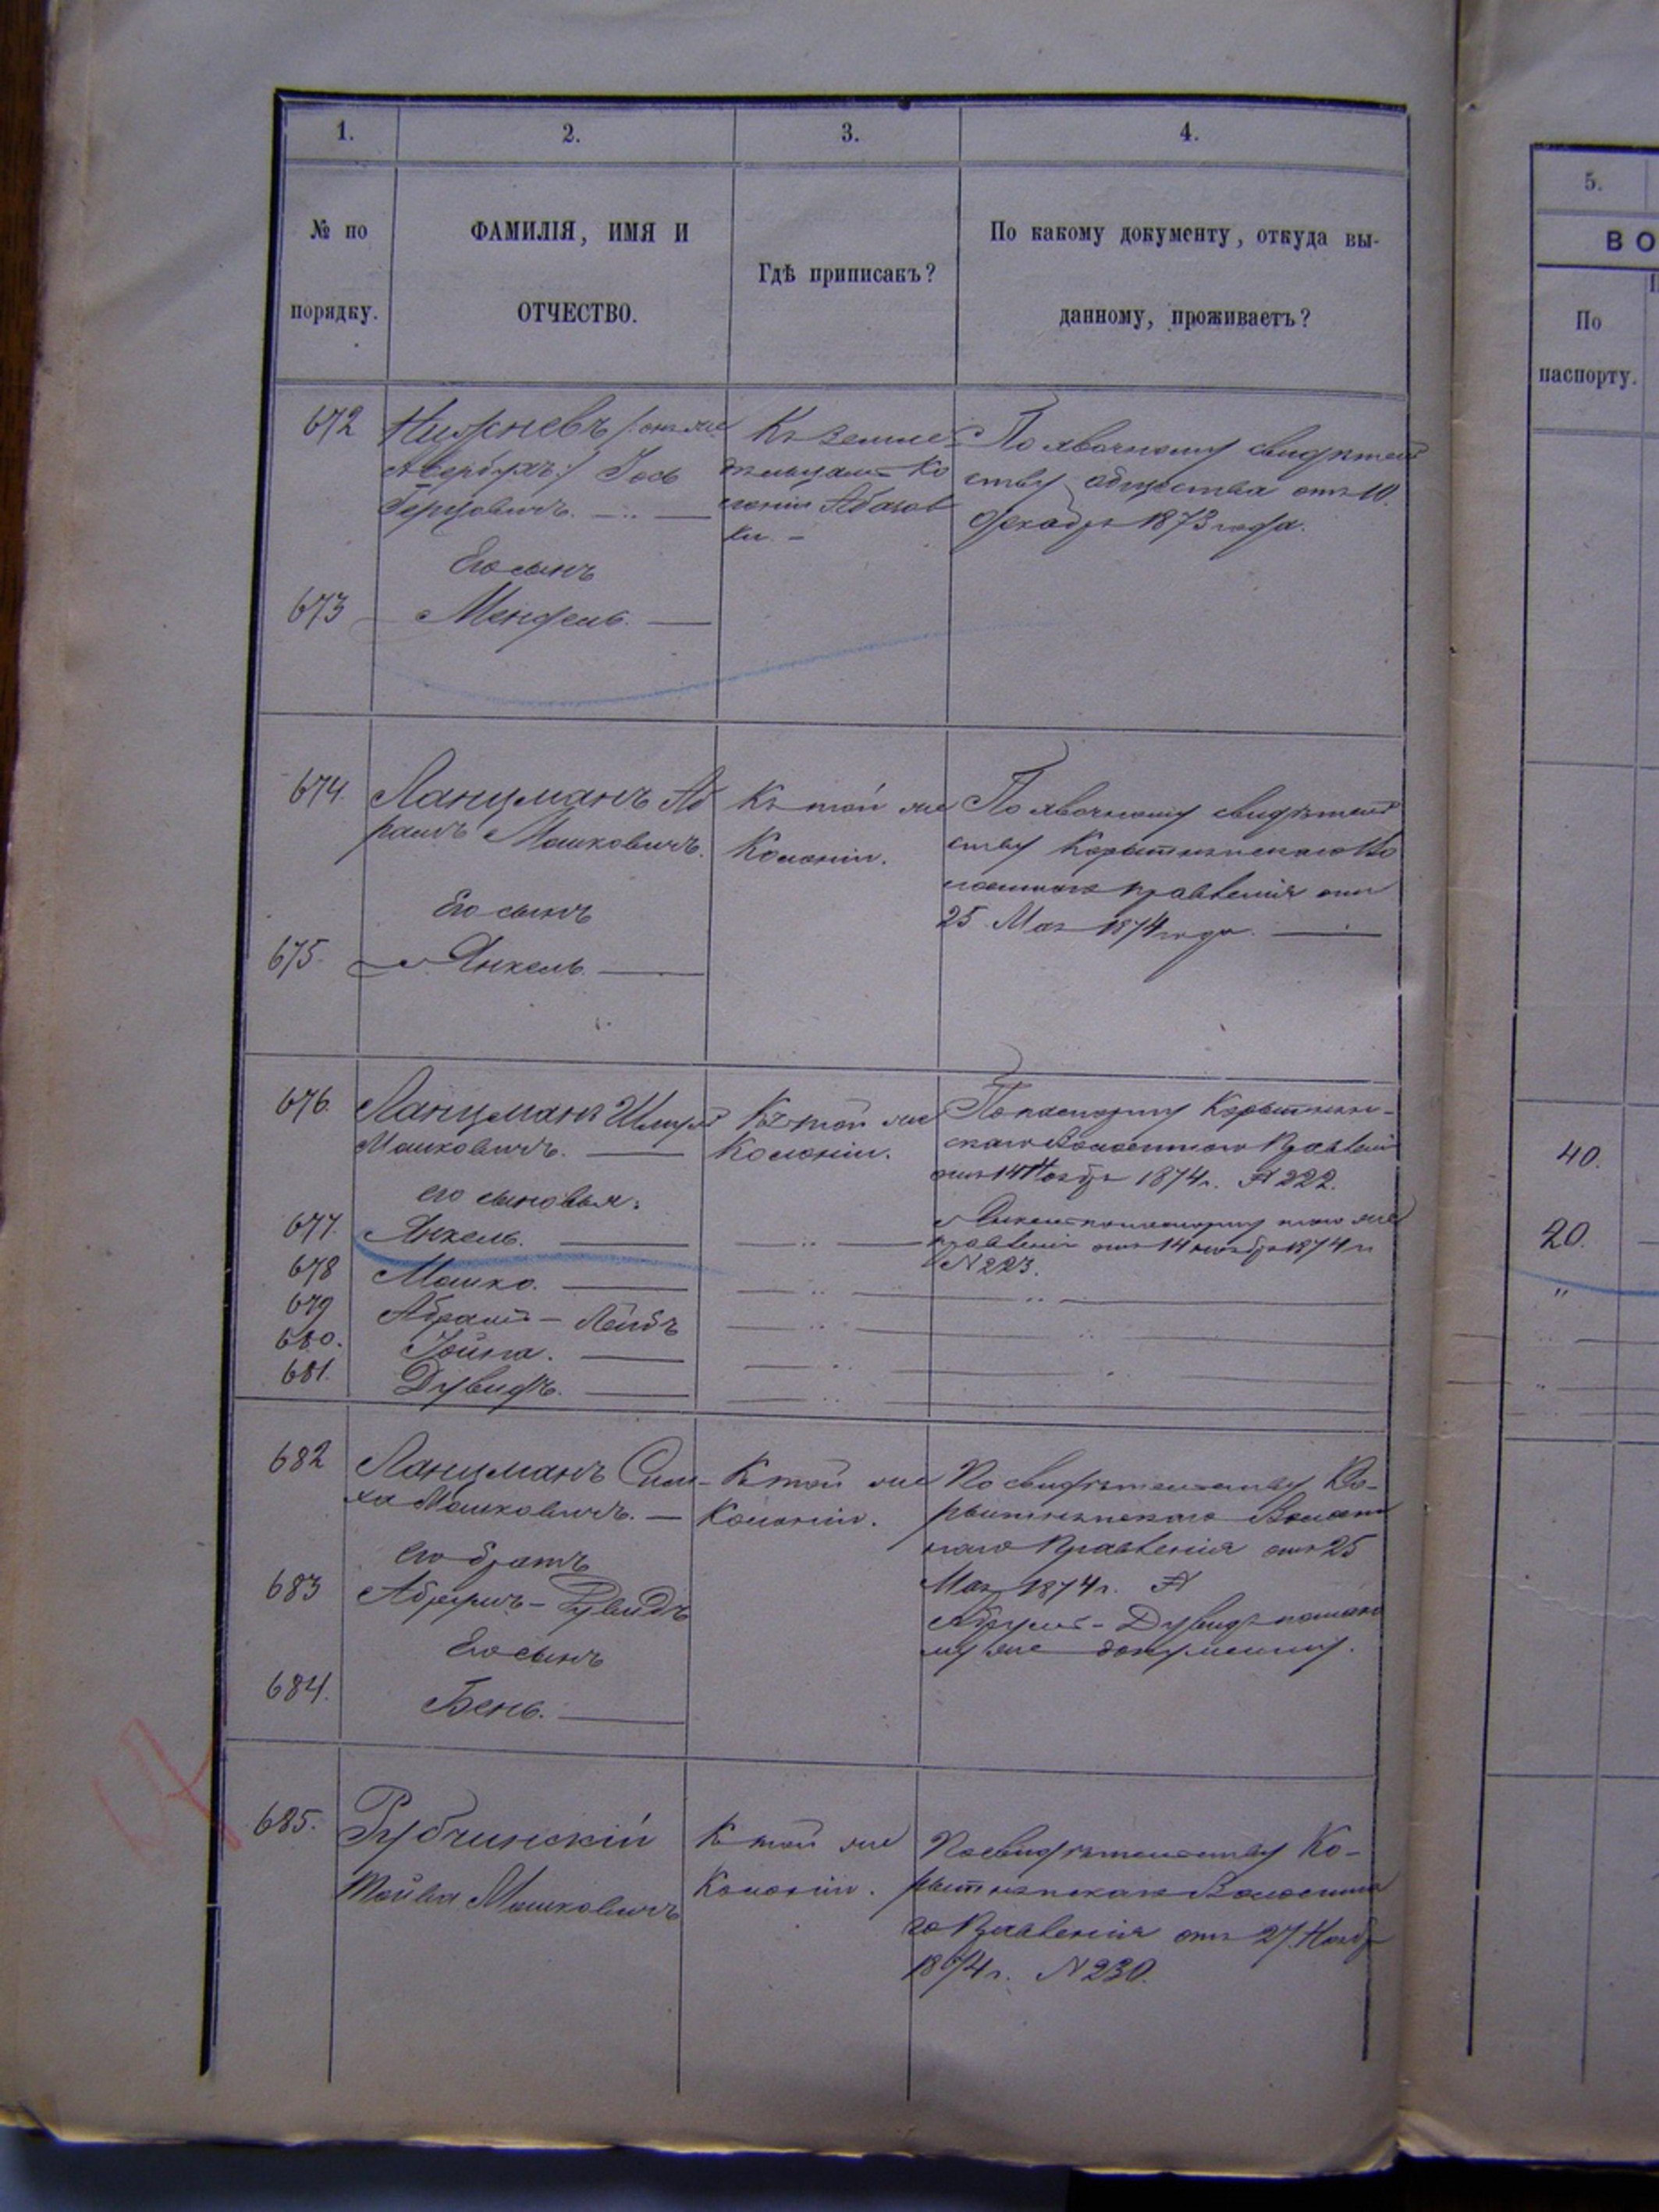 1. 2. 3. 4.
№ по порядку.
ФАМИЛІЯ, ИМЯ И
ОТЧЕСТВО.
Гдѣ приписанъ?
По какому документу, откуда вы-
данному, проживаетъ?
5.
ВО
По
паспорту.
672 Нижневъ /: онъ же
Авербухъ :/ Іось
Герцовичъ.
Къ земле-
дѣльцамъ Ко
лоніи Абазов
ки. –
По явочному свидѣтель
ству общества отъ 10
Декабря 1873 года.
Его сынъ
673 Мендель.
674. Ланцманъ Аб
рамъ Мошковичъ.
Къ той же
Колоніи.
По явочному свидѣтель
ству Корытнянскаго Во
лостнаго правленія отъ
25 Мая 1874 года.
Его сынъ
675. Янкель.
676. Ланцманъ Шмуль
Мошковичъ.
Къ той же
Колоніи.
По паспорту Корытнян-
скаго Волостнаго Правленія
отъ 14 Ноября 1874 г. № 222.
40.
его сыновья:
677. Янкель.
правленія отъ 14 ноября 1874 г.
N 223.
20.
678 Мошко.
"
679 Абрамъ - Лейбъ
680. Іойна.
681. Дувидъ.
"
682 Ланцманъ Сим-
ха Мошковичъ.
Къ той же
Колоніи.
По свидѣтельству Ко-
рытнянскаго Волост
наго Правленія отъ 25
Мая 1874 г. №
его братъ
683 Абрумъ - Дувидъ
Абрумъ - Дувидъ по тако
му же документу.
Его сынъ
684. Бень.
685. Рубчинскій
Тойва Мошковичъ
Къ той же
Колоніи.
По свидѣтельству Ко-
рытнянскаго Волостна
го Правленія отъ 27 Ноябр
1874 г. N 230.